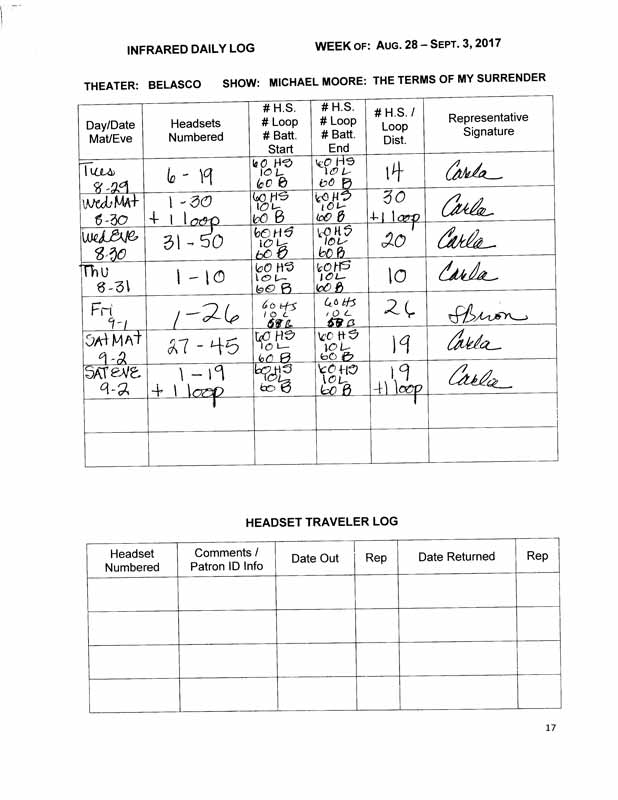 INFRARED DAILY LOG WEEK OF: AUG. 28 – SEPT. 3, 2017
THEATER: BELASCO SHOW: MICHAEL MOORE: THE TERMS OF MY SURRENDER
Day/Date Mat/Eve Headsets Numbered # H.S. # Loop # Batt. Start # H.S. # Loop # Batt. End # H.S. / Loop Dist. Representative Signature
Tues 8-29 6 - 19 60 HS 10 L 60 B 60 HS 10 L 60 B 14 Carla
Wed MAT 8-30 1 - 30 + 1 loop 60 HS 10 L 60 B 60 HS 10 L 60 B 30 + 1 loop Carla
Wed EVE 8-30 31 - 50 60 HS 10 L 60 B 60 HS 10 L 60 B 20 Carla
Thu 8-31 1 - 10 60 HS 10 L 60 B 60 HS 10 L 60 B 10 Carla
Fri 9-1 1 - 26 60 HS 10 L 60 HS 10 L 26
SAT MAT 9-2 27 - 45 60 HS 10 L 60 B 60 HS 10 L 60 B 19 Carla
SAT EVE 9-2 1 - 19 + 1 loop 60 HS 10 L 60 B 60 HS 10 L 60 B 19 +1 loop Carla
HEADSET TRAVELER LOG
Headset Numbered Comments / Patron ID Info Date Out Rep Date Returned Rep
17